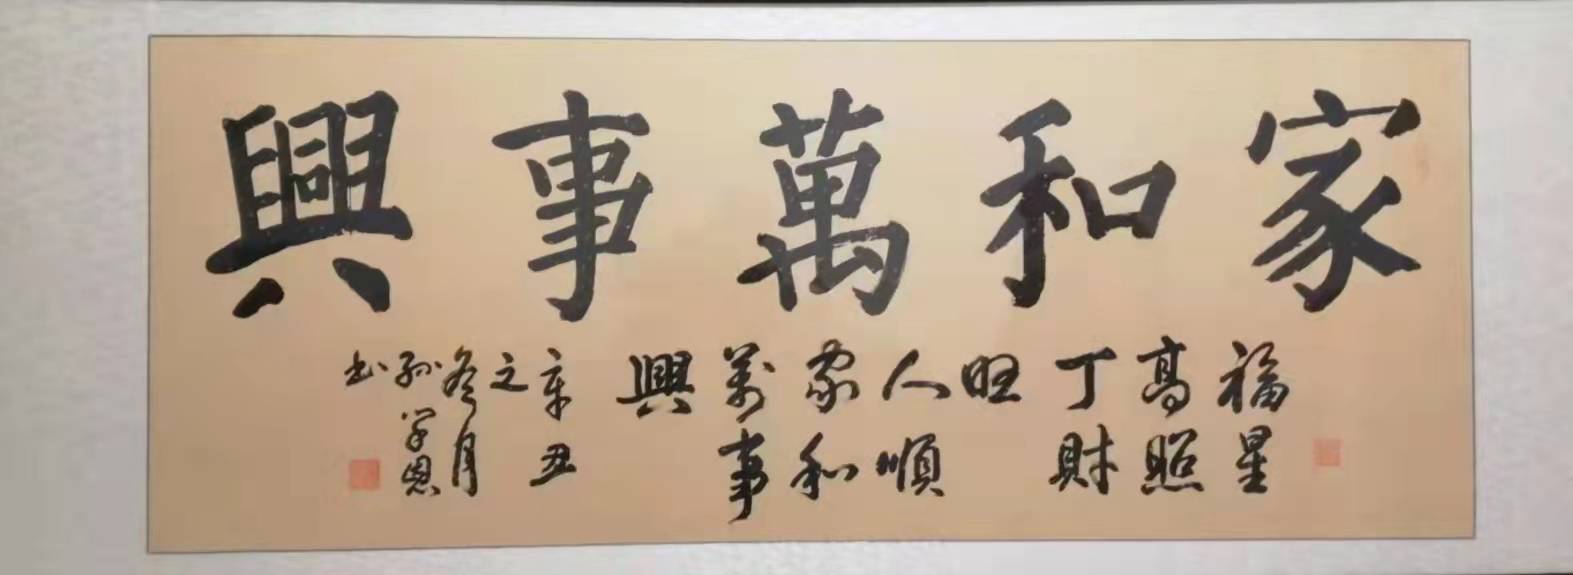 家和萬事興
福星
高照
丁財
旺
人順
家和
萬事
興
辛丑
之
冬月
孙学恩
书